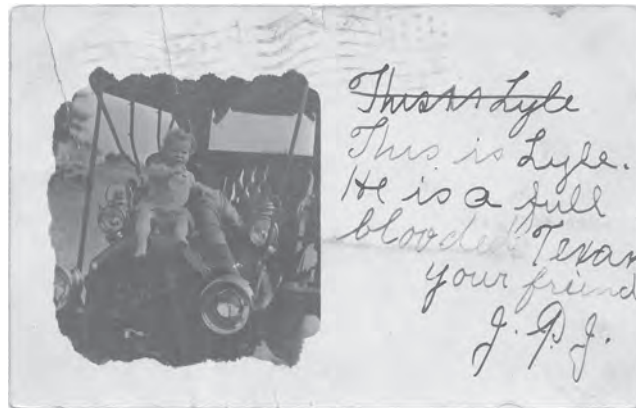 This is Lyle
This is Lyle.
He is a full
blooded Texan
your friend
J. P. J.